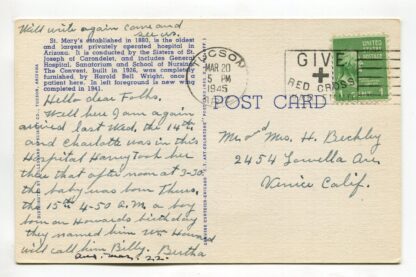 Will write again come and
see us.
St. Mary's established in 1880, is the oldest
and largest privately operated hospital in
Arizona. It is conducted by the Sisters of St.
Joseph of Carondelet, and includes General
Hospital, Sanatorium and School of Nursing.
The Convent, built in 1926, was completely
furnished by Harold Bell Wright, once a
patient here. In left foreground is new wing
completed in 1941.
Hello dear Folks.
Well here I am again
arrived last Wed. the 14th
and Charlotte was in this
Hospital Harry took her
there that after noon at 3-30
the baby was born Thurs.
the 15th 4-50 A.M a boy
born on Howards birthday
they named him Wm Howard
will call him Billy. Bertha
TUCSON
MAR 20
5 PM
1945
GIVE
RED CROSS
POST CARD
Mr and Mrs. H. Beckley
2454 Louella Ave.
Venice Calif.